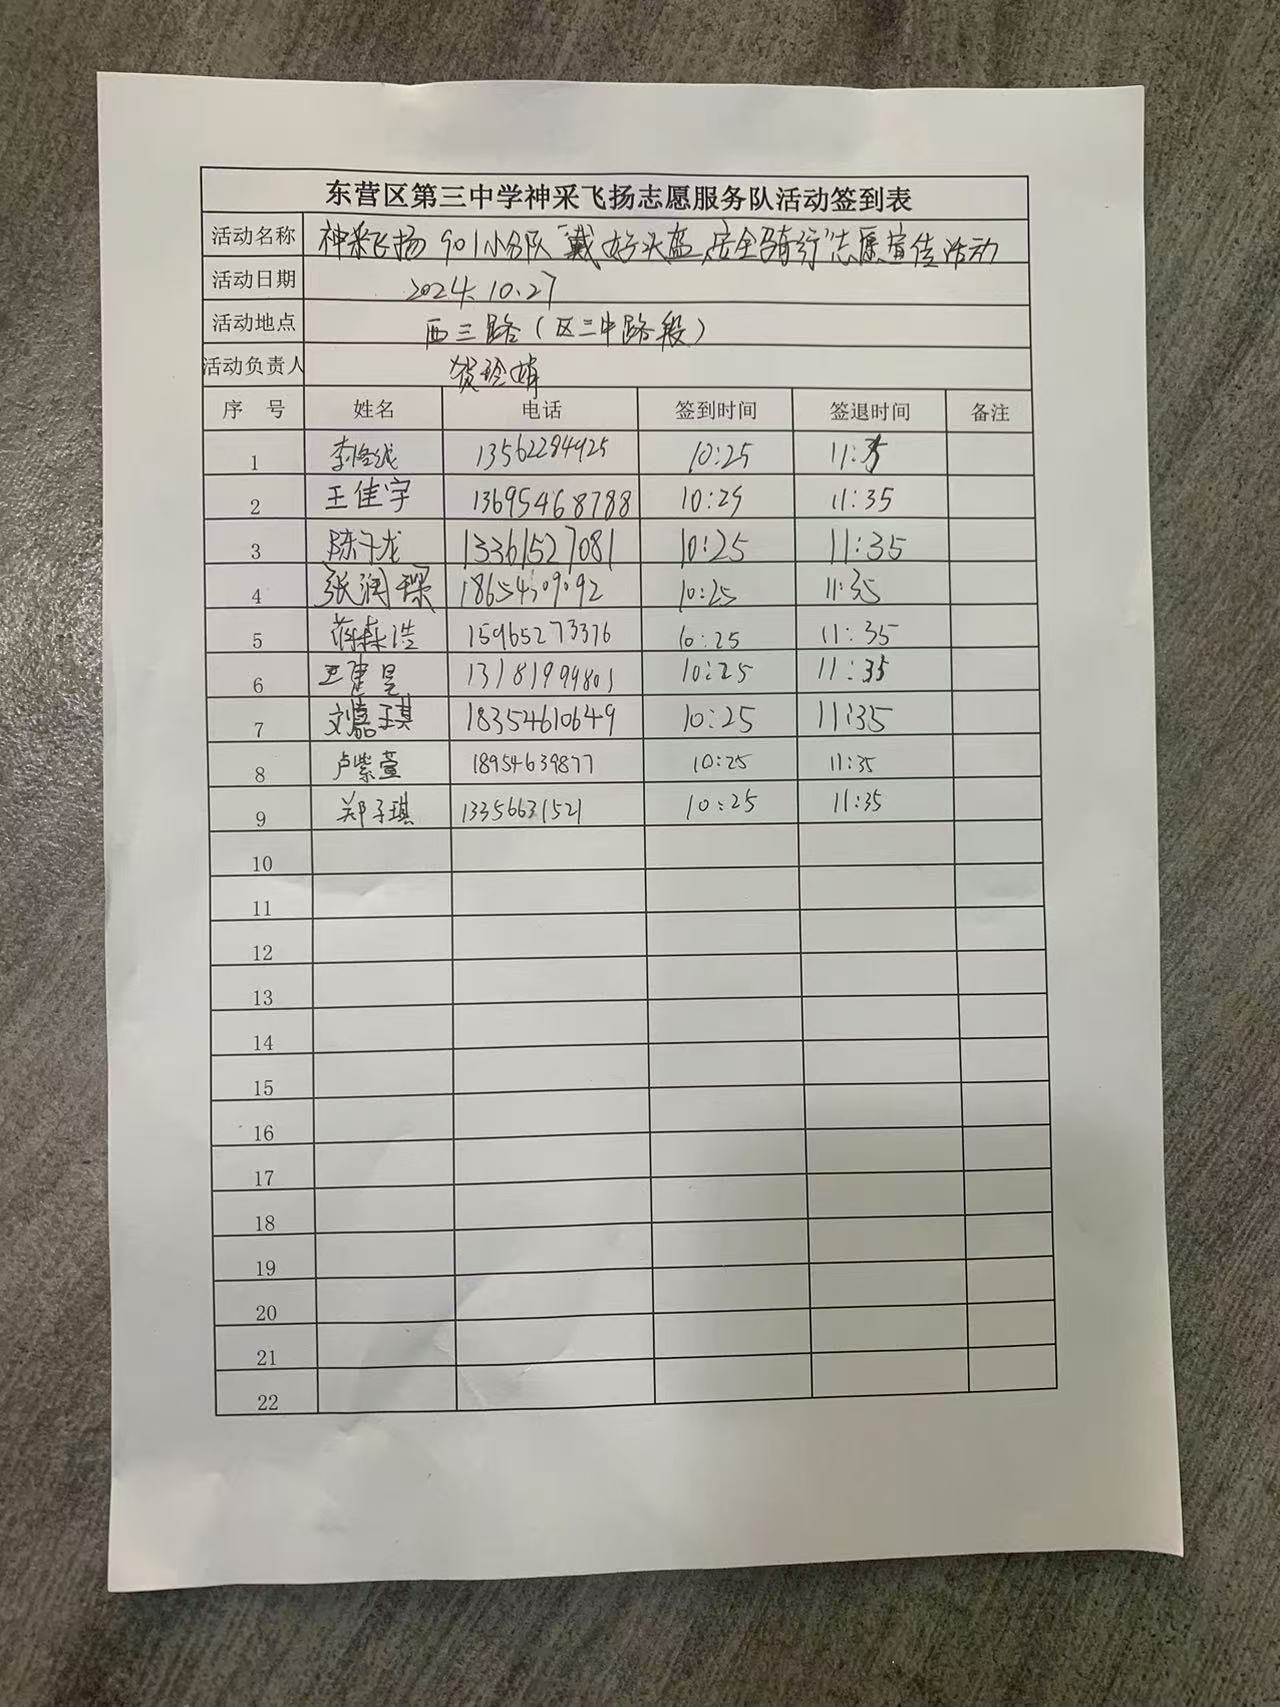 东营区第三中学神采飞扬志愿服务队活动签到表
活动名称 神采飞扬901小分队“戴好头盔,安全骑行”志愿宣传活动
活动日期 2024.10.27
活动地点 西三路(区三中路段)
活动负责人 贺玲娟
序 号 姓名 电话 签到时间 签退时间 备注
1 13562284925 10:25 11:35
2 王佳宇 13695468788 10:25 11:35
3 陈子龙 13361527081 10:25 11:35
4 张润琛 10:25 11:35
5 蒋森浩 15965273376 10:25 11:35
6 王建昊 13181999801 10:25 11:35
7 刘嘉琪 18354610649 10:25 11:35
8 卢紫萱 18954639877 10:25 11:35
9 郑子琪 13356631521 10:25 11:35
10
11
12
13
14
15
16
17
18
19
20
21
22